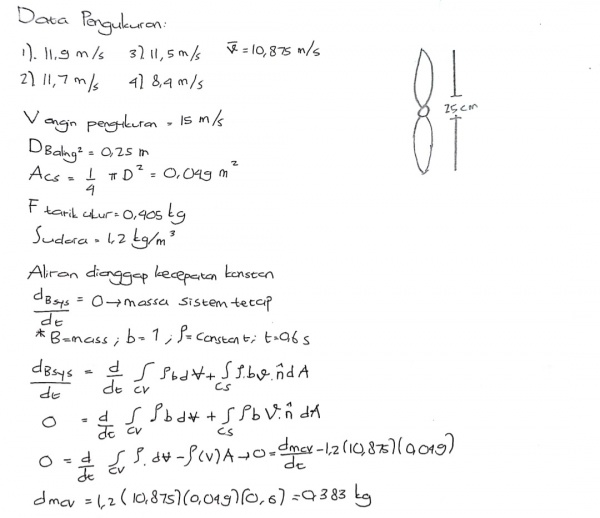 Data Pengukuran:
1). 11,9 m/s 3) 11,5 m/s v̄ = 10,875 m/s
2) 11,7 m/s 4) 8,4 m/s
25 cm
V angin pengukuran = 15 m/s
D Baling² = 0,25 m
Acs = 1/4 π D² = 0,049 m²
F tarik ukur = 0,905 kg
Sudara = 1,2 kg/m³
Aliran dianggap kecepatan konstan
dBsys/dt = 0 → massa sistem tetap
* B=mass ; b = 1 ; ρ = constant ; t=0,6 s
dBsys/dt = d/dt ∫cv ρ b d∀ + ∫cs ρ.b v. n̂ d A
0 = d/dt ∫cv ρ b d∀ + ∫cs ρ b V. n̂ dA
0 = d/dt ∫cv ρ. d∀ - ρ(v) A → 0 = dmcv/dt - 1,2 (10,875) (0,049)
dmcv = 1,2 (10,875) (0,049) (0,6) = 0,383 kg